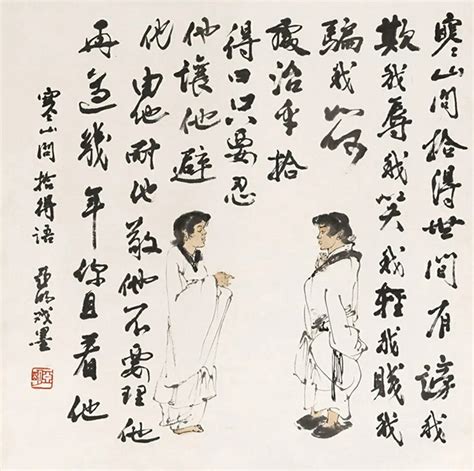 寒山問拾得世間有謗我
欺我辱我笑我輕我賤我
騙我如何
處治乎拾
得曰只要忍
他讓他避
他由他耐他敬他不要理他
再過幾年你且看他
寒山問拾得語 亞明戲墨